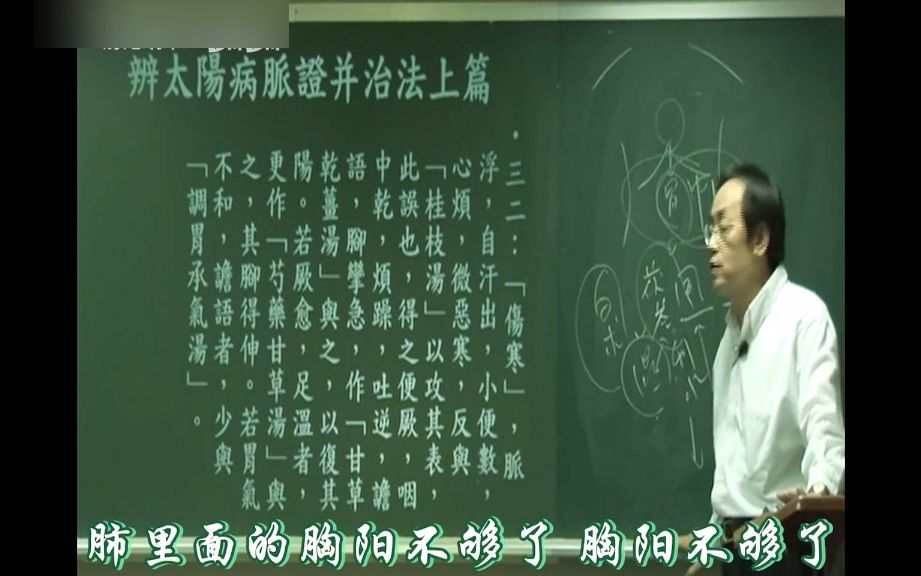 辨太陽病脈證并治法上篇
・三二：「傷寒」，脈
浮，自汗出，小便數，
心煩，微惡寒，反與
「桂枝湯」以攻其表，
此誤也，得之便厥，咽
中乾，煩躁，吐逆，譫
語，腳攣急，作「甘草
乾薑湯」與之，以復其
陽。若厥愈，足溫者，
更作「芍藥甘草湯」與
之，其腳得伸。若胃氣
不和，譫語者，少與
「調胃承氣湯」。
肺里面的胸阳不够了 胸阳不够了